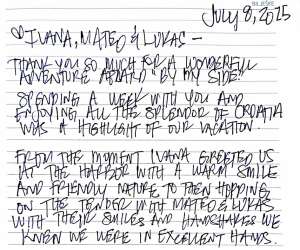 July 8, 2025
♡ IVANA, MATEO & LUKAS –
THANK YOU SO MUCH FOR A WONDERFUL
ADVENTURE ABOARD "BY MY SIDE"
SPENDING A WEEK WITH YOU AND
ENJOYING ALL THE SPLENDOR OF CROATIA
WAS A HIGHLIGHT OF OUR VACATION.
FROM THE MOMENT IVANA GREETED US
AT THE HARBOR WITH A WARM SMILE
AND FRIENDLY NATURE TO THEN HOPPING
ON THE TENDER WITH MATEO & LUKAS
WITH THEIR SMILES AND HANDSHAKES WE
KNEW WE WERE IN EXCELLENT HANDS.